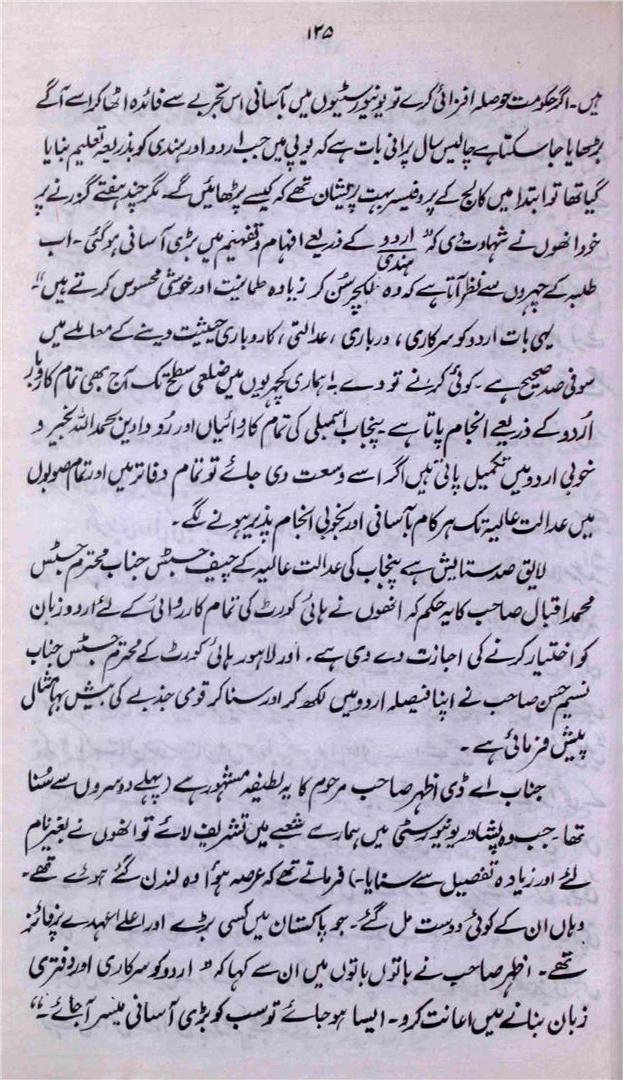 ۱۲۵
ہیں۔ اگر حکومت حوصلہ افزائی کرے تو یونیورسٹیوں میں بآسانی اس تجربے سے فائدہ اٹھا کر اسے آگے
بڑھایا جا سکتا ہے چالیس سال پرانی بات ہے کہ یوپی میں جب اردو اور ہندی کو بذریعۂ تعلیم بنایا
گیا تھا تو ابتدا میں کالج کے پروفیسر بہت پریشان تھے کہ کیسے پڑھائیں گے۔ مگر چند ہفتے گزرنے پر
خود انھوں نے شہادت دی کہ "اردو / ہندی کے ذریعے افہام و تفہیم میں بڑی آسانی ہو گئی۔ اب
طلبہ کے چہروں سے نظر آتا ہے کہ وہ لکچر سُن کر زیادہ طمانیت اور خوشی محسوس کرتے ہیں"۔
یہی بات اردو کو سرکاری، درباری، عدالتی، کاروباری حیثیت دینے کے معاملے میں
سو فی صد صحیح ہے۔ کوئی کرنے تو دے! ہماری کچہریوں میں ضلعی سطح تک آج بھی تمام کاروبار
اُردو کے ذریعے انجام پاتا ہے پنجاب اسمبلی کی تمام کاروائیاں اور رودادیں بحمداللہ بخیر و
خوبی اردو میں تکمیل پاتی ہیں اگر اسے وسعت دی جائے تو تمام دفاتر میں اور تمام صوبوں
میں عدالت عالیہ تک ہر کام بآسانی اور بخوبی انجام پذیر ہونے لگے۔
لایق صد ستایش ہے پنجاب کی عدالت عالیہ کے چیف جسٹس جناب محترم جسٹس
محمد اقبال صاحب کا یہ حکم کہ انھوں نے ہائی کورٹ کی تمام کارروائی کے لئے اردو زبان
کو اختیار کرنے کی اجازت دے دی ہے۔ اور لاہور ہائی کورٹ کے محترم جسٹس جناب
نسیم حسن صاحب نے اپنا فیصلہ اردو میں لکھ کر اور سنا کر قومی جذبے کی بیش بہا مثال
پیش فرمائی ہے۔
جناب اے ڈی اظہر صاحب مرحوم کا یہ لطیفہ مشہور ہے (پہلے دوسروں سے سُنا
تھا۔ جب وہ پشاور یونیورسٹی میں ہمارے شعبے میں تشریف لائے تو انھوں نے بغیر نام
لئے اور زیادہ تفصیل سے سنایا۔) فرماتے تھے کہ عرصہ ہوُا وہ لندن گئے ہوئے تھے۔
وہاں ان کے کوئی دوست مل گئے۔ جو پاکستان میں کسی بڑے اور اعلےٰ عہدے پر فائز
تھے۔ اظہر صاحب نے باتوں باتوں میں ان سے کہا کہ "اردو کو سرکاری اور دفتری
زبان بنانے میں اعانت کرو۔ ایسا ہو جائے تو سب کو بڑی آسانی میسر آ جائے۔"